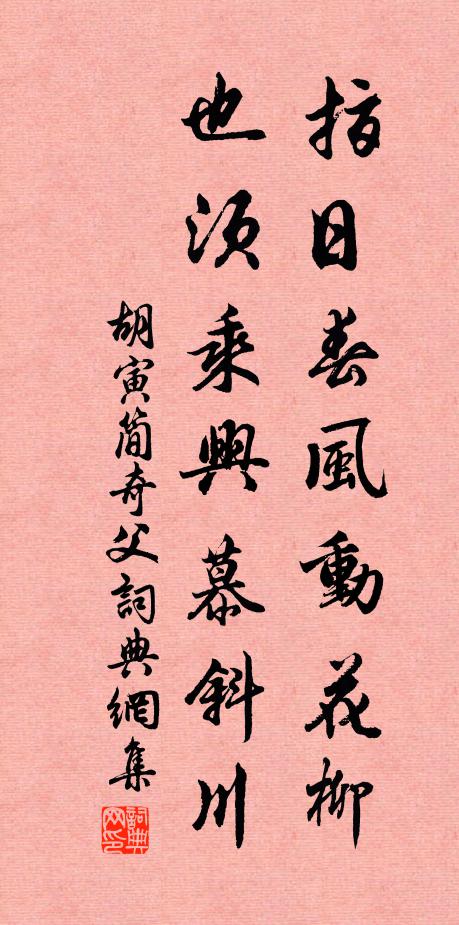 指日春風動花柳
也須乘興慕斜川
胡寅簡奇父詞典網集
詞典网印